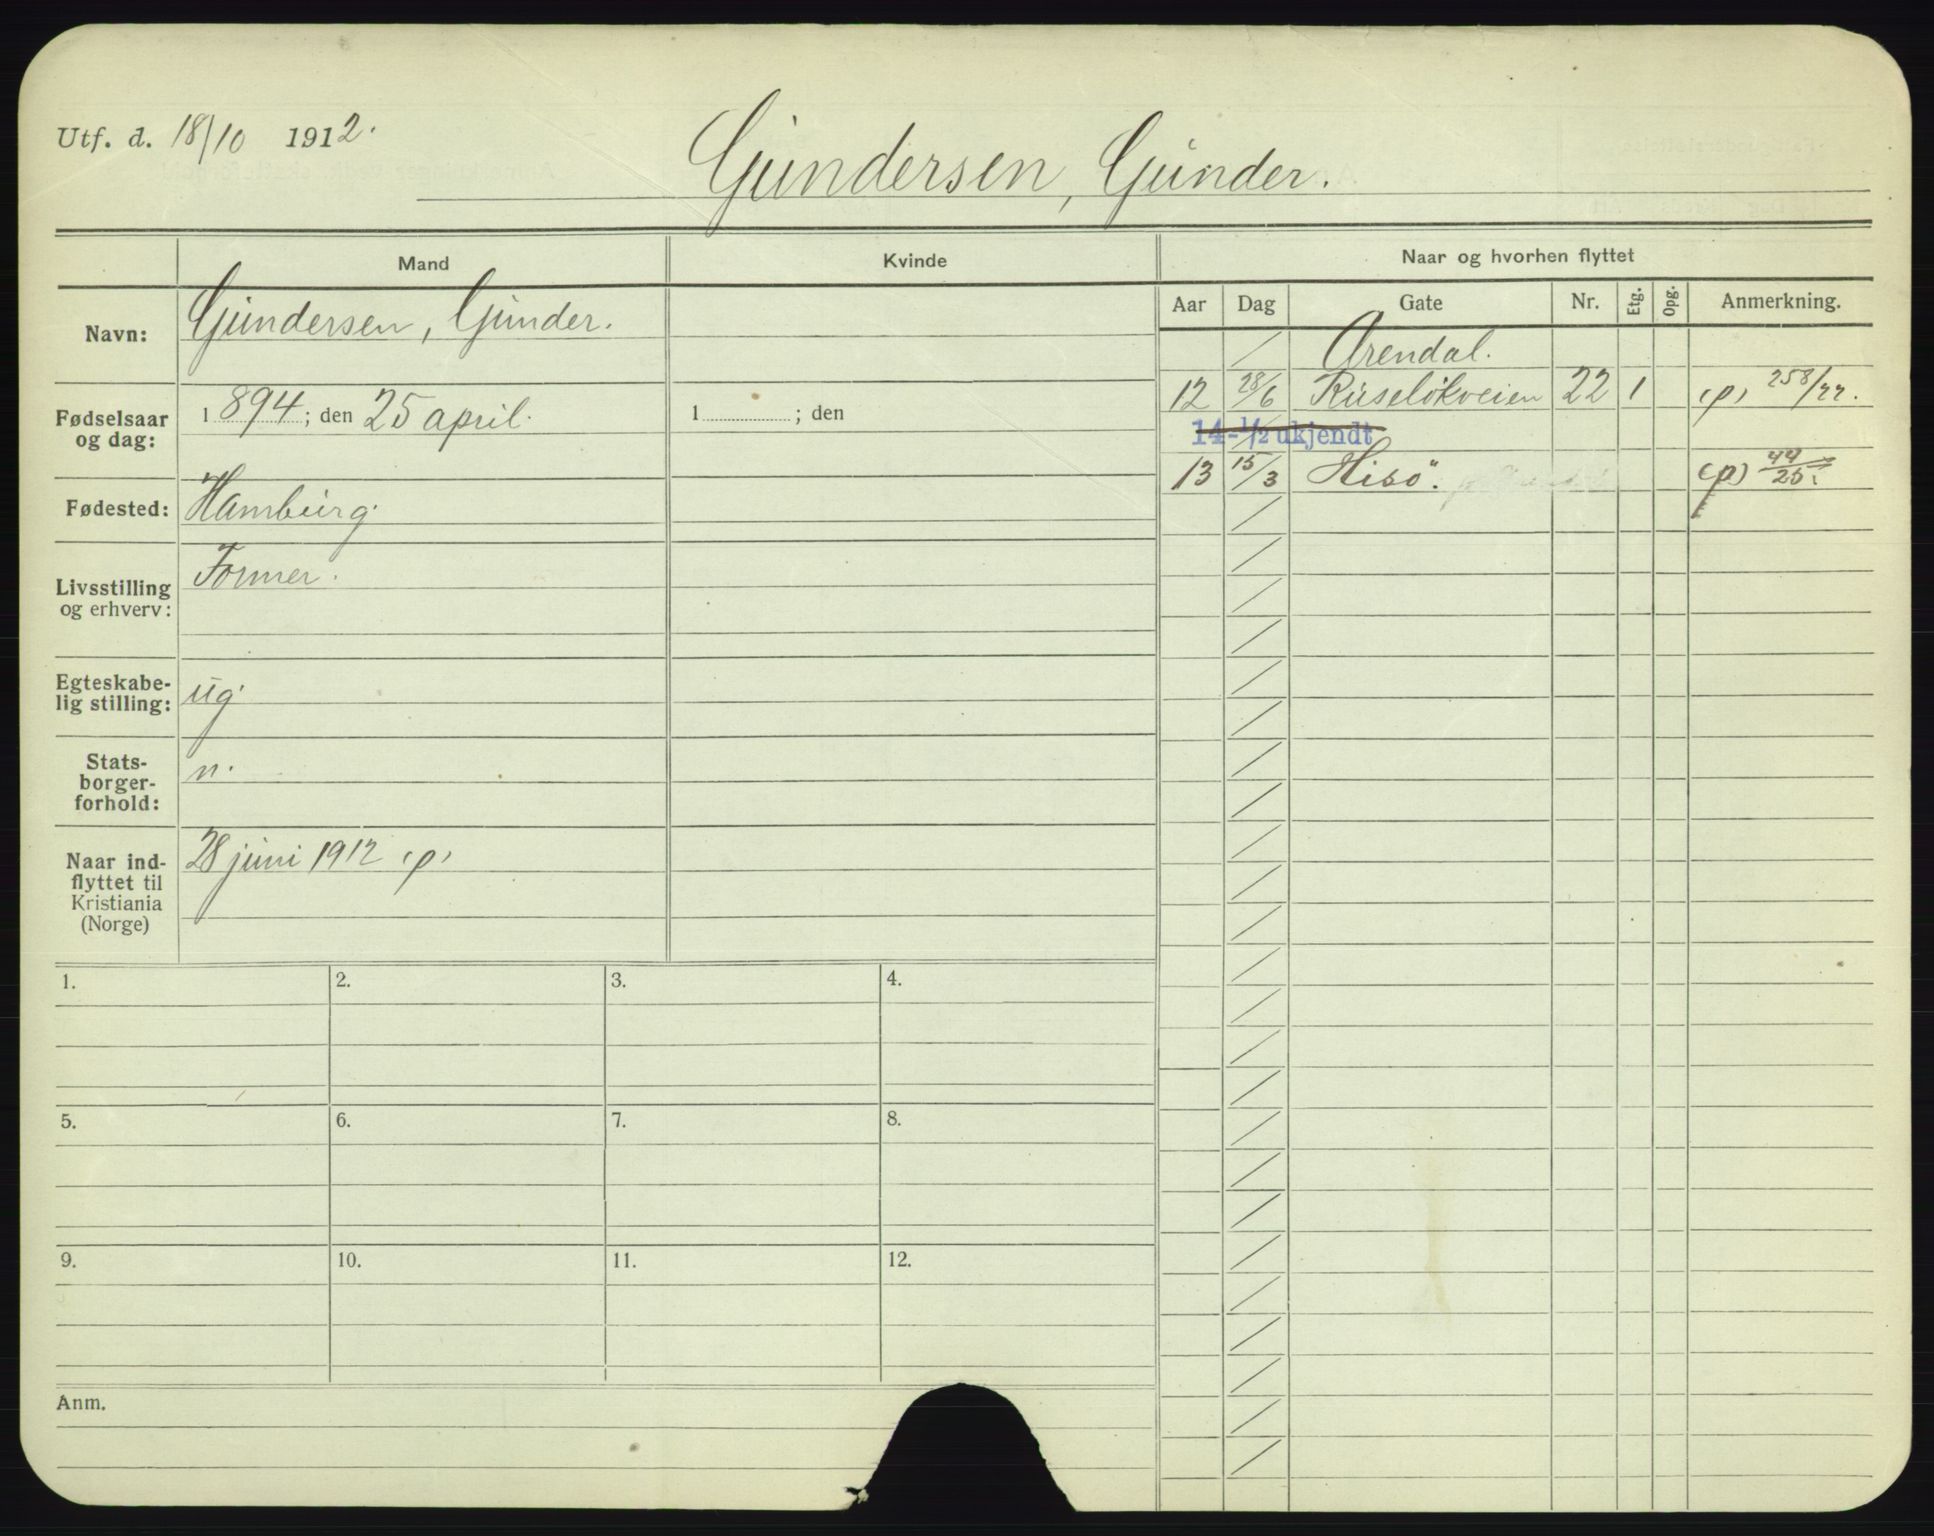 Utf. d. 18/10 1912.
Gundersen, Gunder.
Mand
Kvinde
Naar og hvorhen flyttet
Navn:
Gundersen, Gunder.
Fødselsaar og dag:
1894; den 25 april.
1 ; den
Fødested:
Hamburg.
Livsstilling og erhverv:
Former.
Egteskabe-
lig stilling:
ug.
Stats-
borger-
forhold:
n.
Naar ind-
flyttet til
Kristiania
(Norge)
28 juni 1912 (p)
Aar Dag Gate Nr. Etg. Opg. Anmerkning.
Arendal.
12 28/6 Ruseløkveien 22 1 (p) 258/22.
14-1/2 ukjendt
13 15/3 Hisö. (p) 44/25.
1. 2. 3. 4.
5. 6. 7. 8.
9. 10. 11. 12.
Anm.